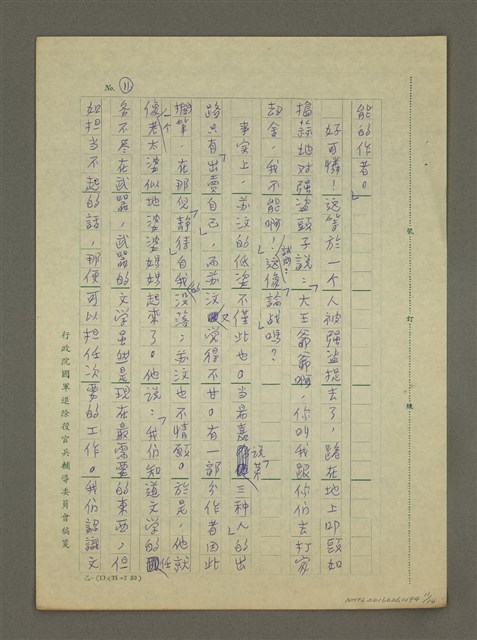 No. 11
能的作者。」
好可憐!這等於一个人被强盜捉去了,跪在地上叩頭如
搗蒜地对强盜頭子說:「大王爺爺啊,你叫我跟你们去打家
劫舍,我不能啊!」試問:這像論战嗎?
事实上,苏汶的低姿不僅此也。当易嘉說「第三种人」的出
路只有「出賣自己」,而苏汶又觉得不甘。有一部分作者因此
擱筆,在那儿「静待自我的没落」,苏汶也不情願。於是,他就
像一个老太婆似地婆婆媽媽起來了。他說:「我们知道文学的任
务不尽在武器,武器的文学虽然是現在最需要的東西,但
如担当不起的話,那便可以担任次要的工作。我们認識文
行政院國軍退除役官兵輔導委員會稿箋
裝 訂 線